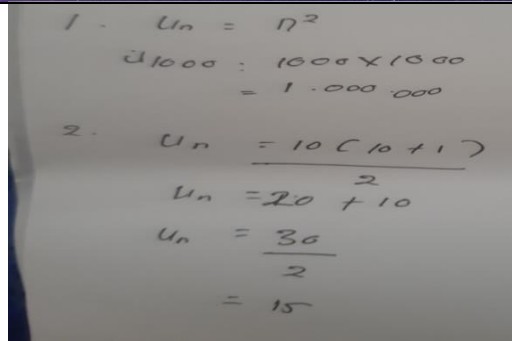 1. Un = n²
U1000 : 1000 x 1000
= 1.000.000
2. Un = 10 ( 10 + 1 )
2
Un = 20 + 10
Un = 30
2
= 15